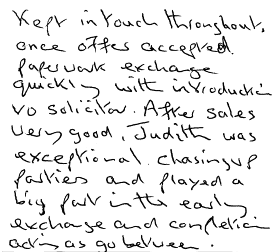 Kept in touch throughout,
once offer accepted.
paperwork exchange
quickly with introduction
to solicitor. After sales
very good, Judith was
exceptional chasing up
parties and played a
big part in the early
exchange and completion
acting as go between.